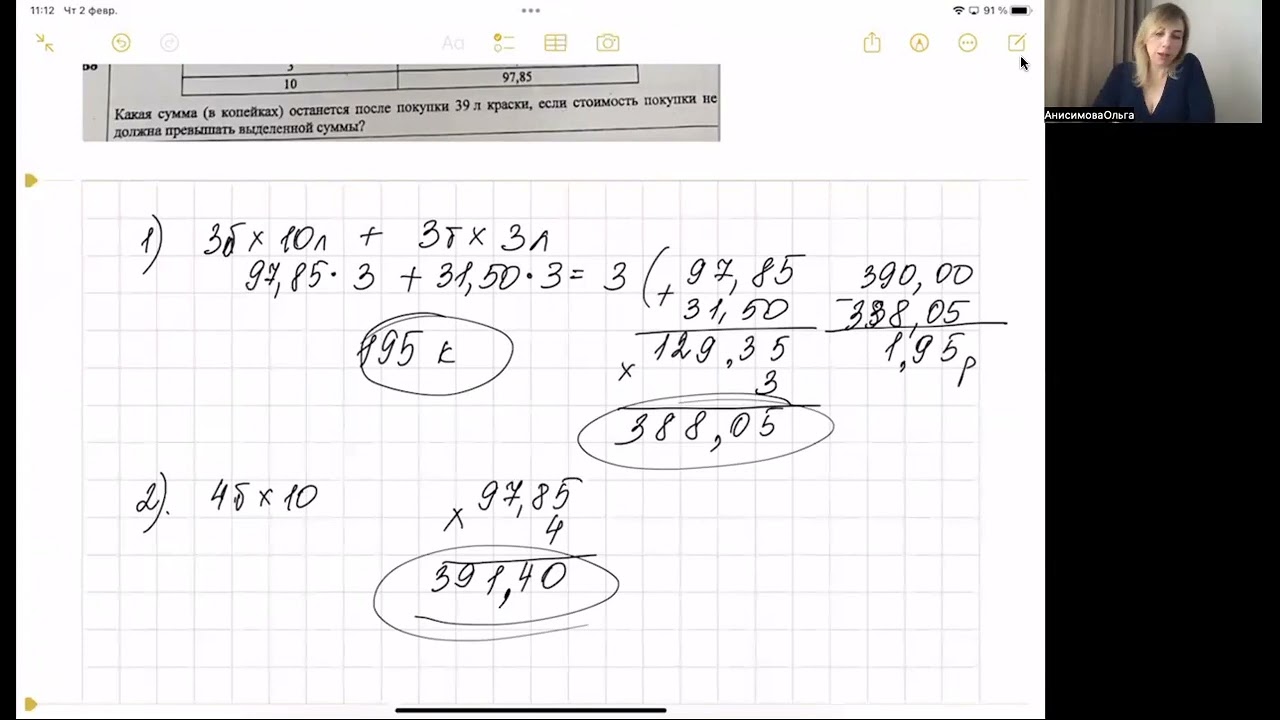 11:12 Чт 2 февр.
91 %
Aa
3
10 97,85
Какая сумма (в копейках) останется после покупки 39 л краски, если стоимость покупки не
должна превышать выделенной суммы?
АнисимоваОльга
1) 3б × 10л + 3б × 3л
97,85 · 3 + 31,50 · 3 = 3 (
+ 97,85
31,50
129,35
× 3
388,05
390,00
- 388,05
1,95 р
195 к
2). 4б × 10
97,85
× 4
391,40